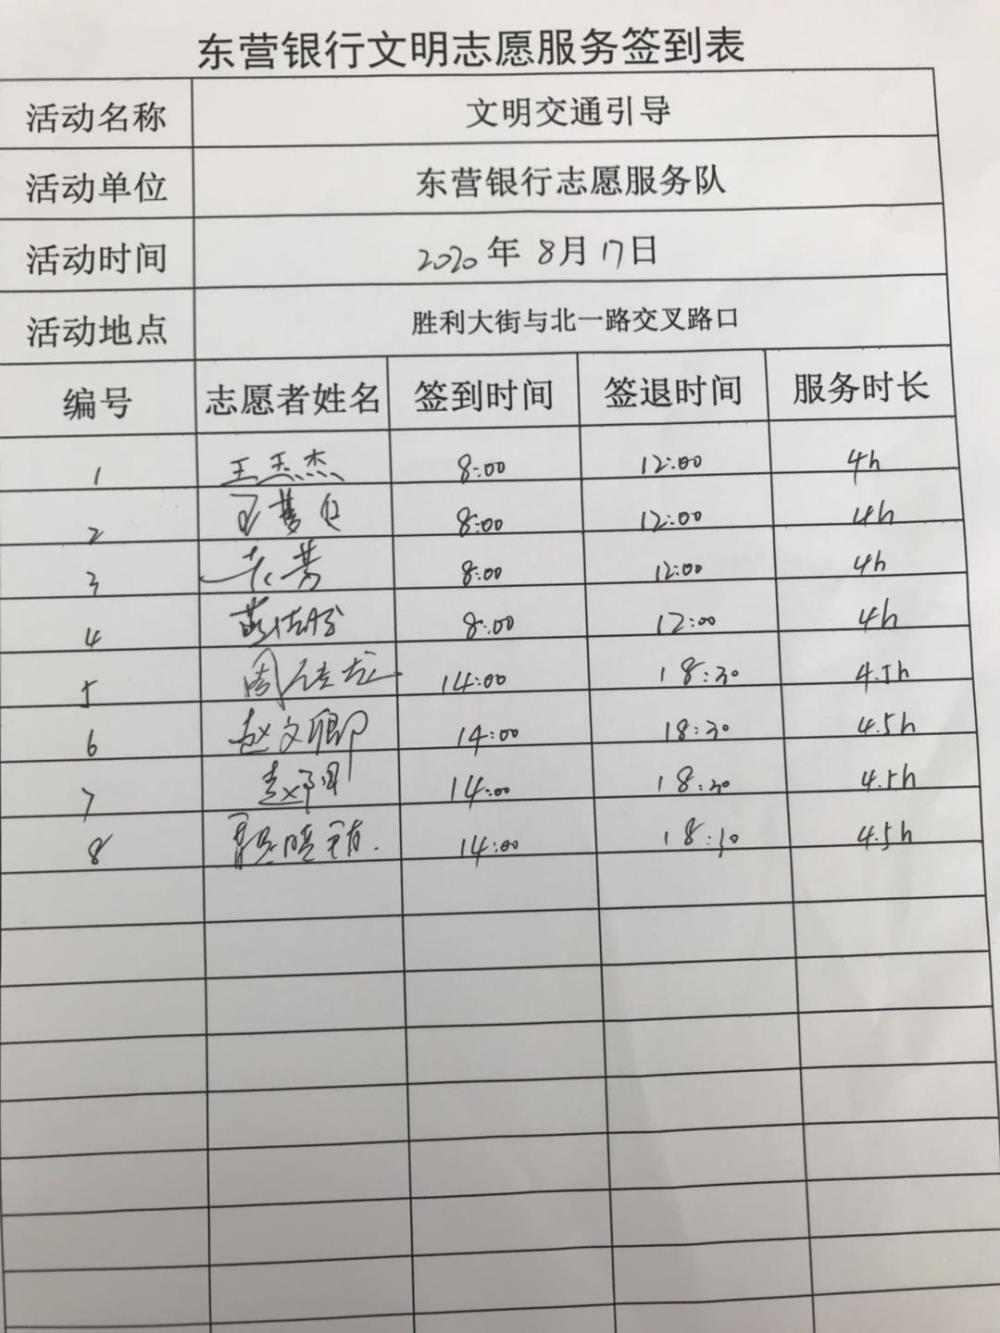 东营银行文明志愿服务签到表
活动名称 文明交通引导
活动单位 东营银行志愿服务队
活动时间 2020年 8月17日
活动地点 胜利大街与北一路交叉路口
编号 志愿者姓名 签到时间 签退时间 服务时长
1 王杰 8:00 12:00 4h
2 8:00 12:00 4h
3 8:00 12:00 4h
4 8:00 12:00 4h
5 周 14:00 18:30 4.5h
6 赵文卿 14:00 18:30 4.5h
7 赵阳 14:00 18:30 4.5h
8 14:00 18:30 4.5h